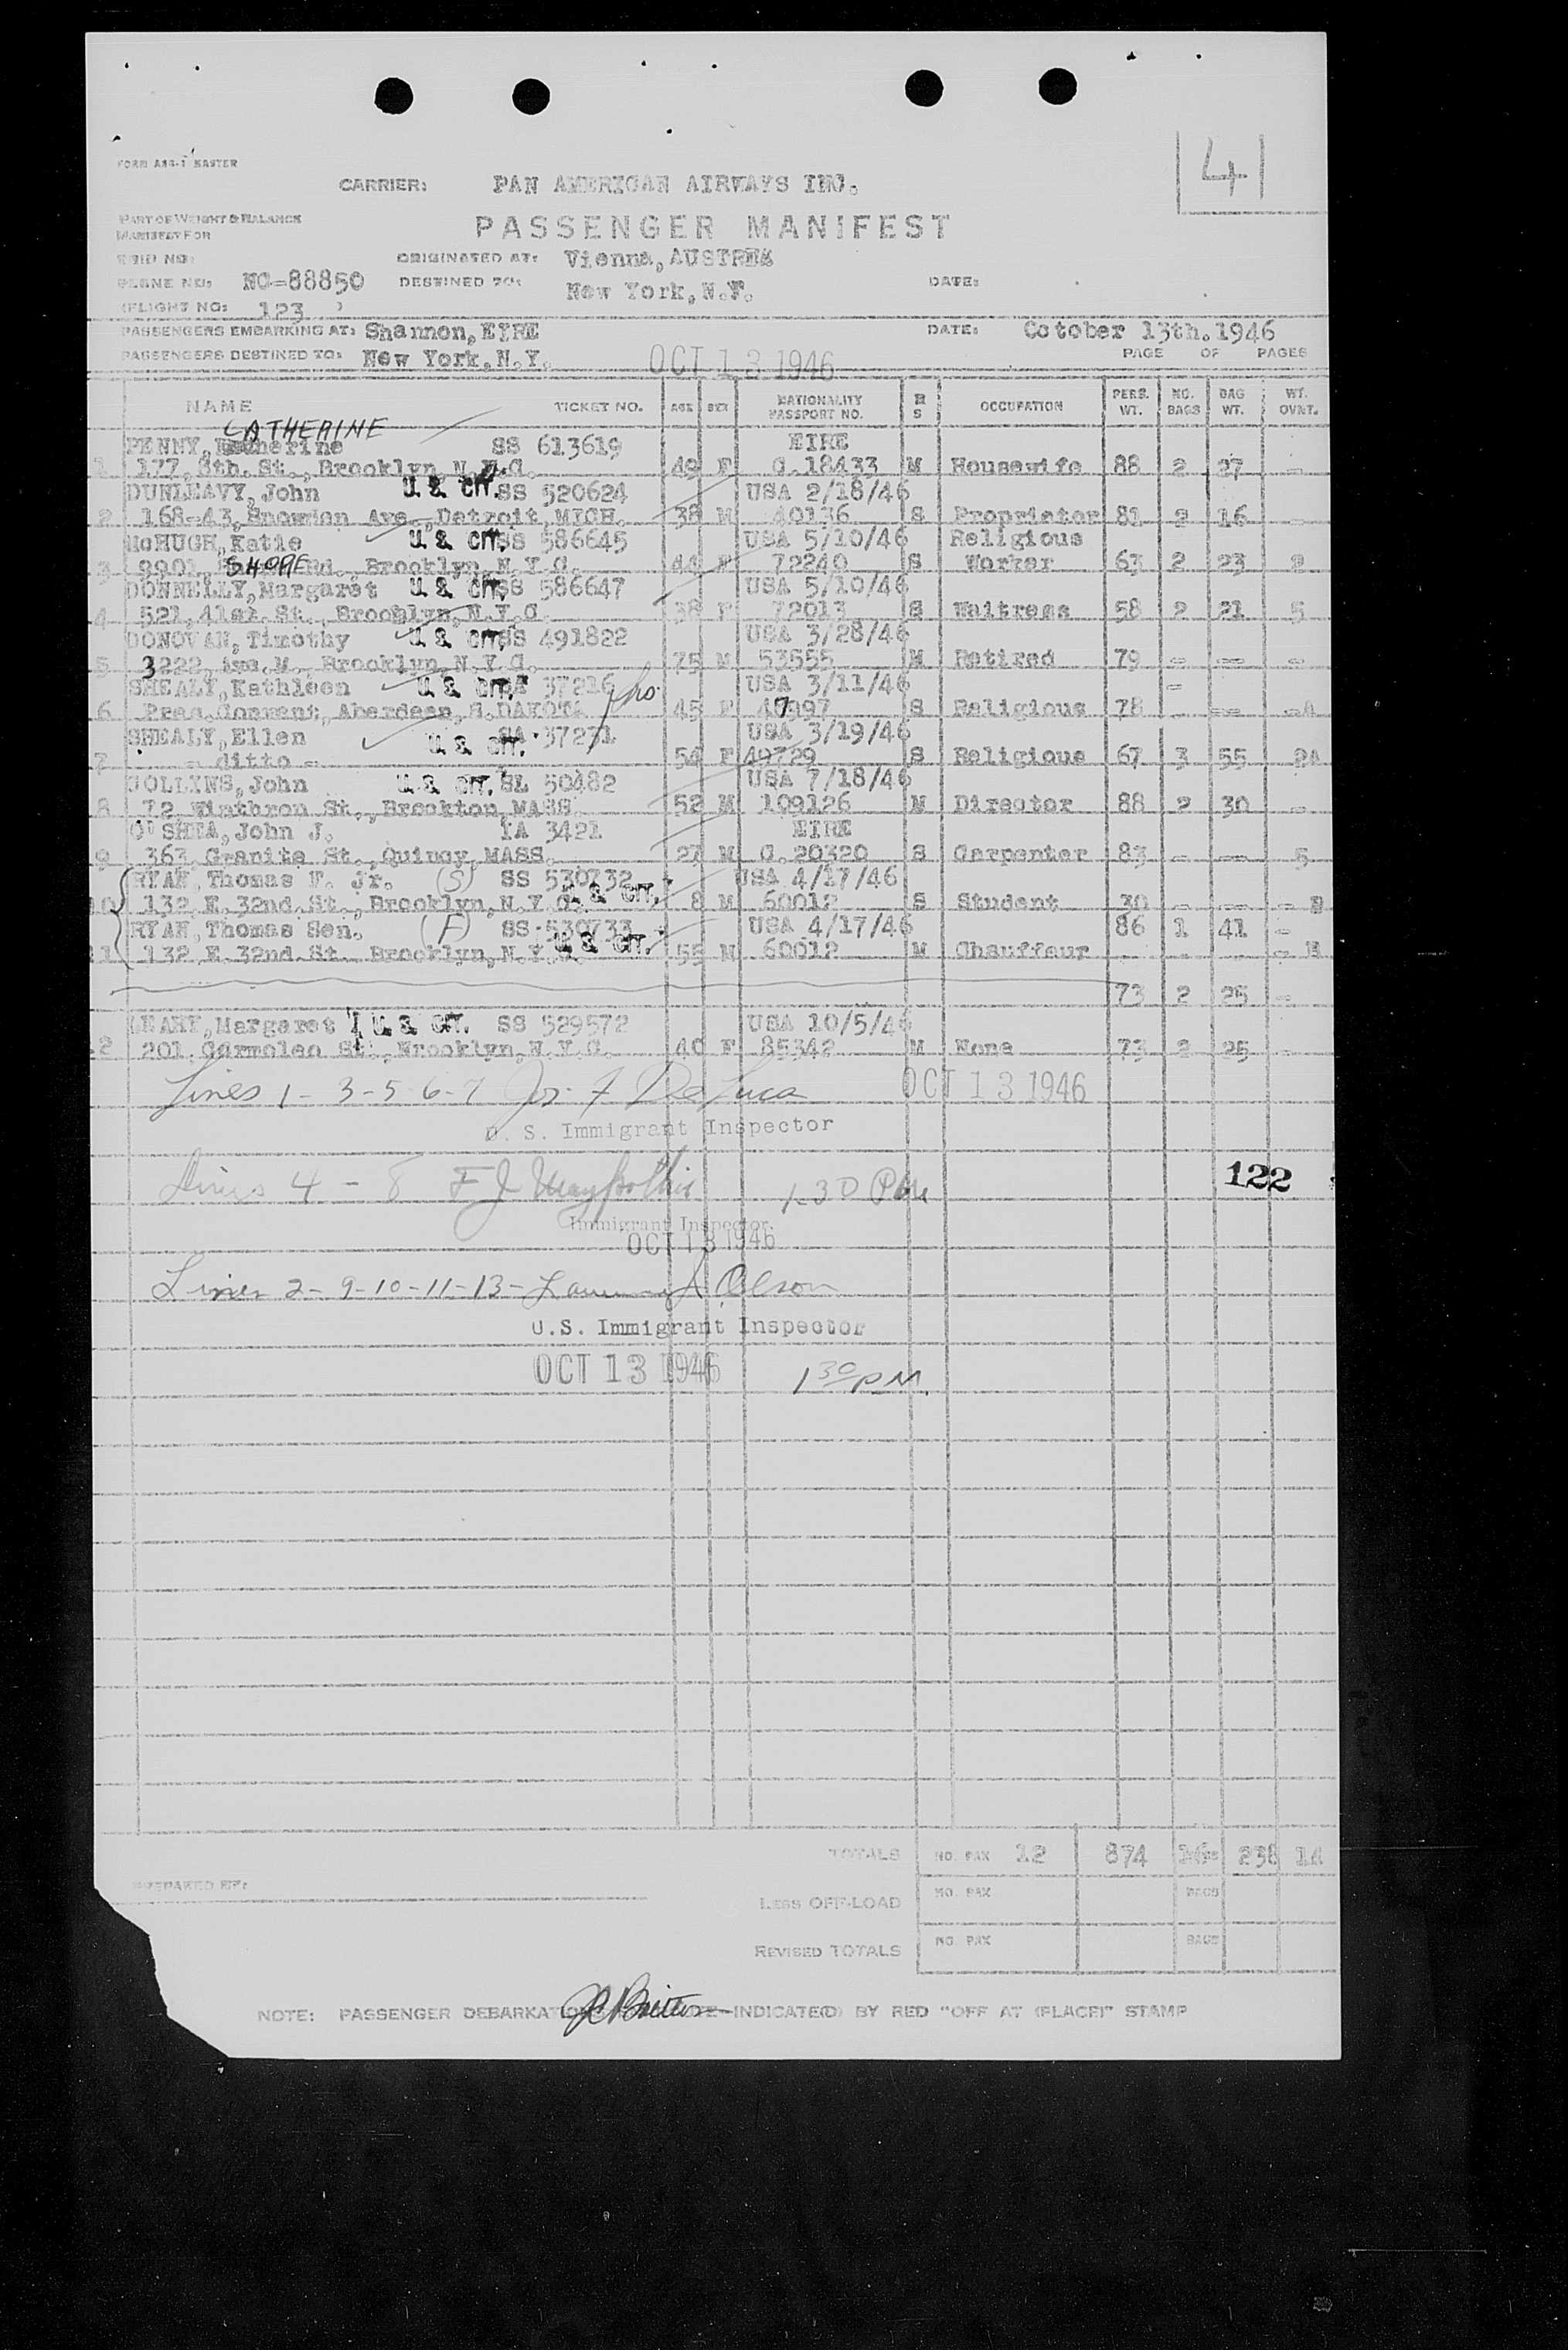 FORM ASS-1 MASTER
4
CARRIER: PAN AMERICAN AIRWAYS INC.
PART OF WEIGHT & BALANCE
MANIFEST FOR
PASSENGER MANIFEST
ORIGINATED AT: Vienna, AUSTRIA
PLANE NO: NC-88850 DESTINED TO: New York, N.Y. DATE:
FLIGHT NO: 123
PASSENGERS EMBARKING AT: Shannon, EIRE DATE: October 13th.1946
PASSENGERS DESTINED TO: New York, N.Y. OCT 13 1946 PAGE OF PAGES
NAME TICKET NO. AGE SEX NATIONALITY PASSPORT NO. M S OCCUPATION PERS. WT. NO. BAGS BAG WT. WT. OVRT.
CATHERINE
PENNY, SS 613619 EIRE
1 177, 8th. St., Brooklyn N.Y.C. 49 F C.18433 M Housewife 88 2 27 -
DUNLEAVY, John U. S. CIT. SS 520624 USA 2/18/46
2 168-43, Ave., Detroit, MICH. 38 M 40136 S Proprietor 81 2 16 -
McHUGH, Katie U. S. CIT. SS 586645 USA 5/10/46 Religious
3 9901, SHORE Rd., Brooklyn, N.Y.C. 44 F 72240 S Worker 63 2 23
DONNELLY, Margaret U. S. CIT. SS 586647 USA 5/10/46
4 521, 41st. St., Brooklyn, N.Y.C. 38 F 72013 S Waitress 58 2 21 5
DONOVAN, Timothy U. S. CIT. SS 491822 USA 3/28/46
5 3222, Ave. M., Brooklyn, N.Y.C. 75 M 53555 M Retired 79 - -- -
SHEALY, Kathleen U. S. CIT. 37216 USA 3/11/46 -
6 Pres. Convent, Aberdeen, S. DAKOTA 45 F 47997 S Religious 78 - -- -A
SHEALY, Ellen U. S. CIT. SA 37271 USA 3/19/46
7 - ditto - 54 F 49729 S Religious 67 3 55 2A
JOLLYNS, John U. S. CIT. SL 50482 USA 7/18/46
8 72, Winthrop St., Brockton, MASS. 52 M 109126 M Director 88 2 30 -
O'SHEA, John J. IA 3421 EIRE
9 363, Granite St., Quincy, MASS. 27 M C.20320 S Carpenter 83 - -- 5
RYAN, Thomas F. Jr. (S) SS 530732 USA 4/17/46
10 132, E. 32nd. St., Brooklyn, N.Y.C. U. S. CIT. 8 M 60012 S Student 30 - -- -
RYAN, Thomas Sen. (F) SS 530733 USA 4/17/46 86 1 41 -
11 132, E. 32nd. St. Brooklyn, N.Y.C. U. S. CIT. 55 M 60012 M Chauffeur
73 2 25 -
LEAHY, Margaret U. S. CIT. SS 529572 USA 10/5/46
12 201, St., Brooklyn, N.Y.C. 40 F 85342 M None 73 2 25 -
Lines 1-3-5-6-7 Jos. F DeLuca OCT 13 1946
U. S. Immigrant Inspector
Lines 4 - 8 F J 130 PM 122
Immigrant Inspector
OCT 13 1946
Lines 2-9-10-11-13- Olson
U.S. Immigrant Inspector
OCT 13 1946 1 30 PM.
TOTALS NO. PAX 12 874 16 238 14
PREPARED BY: NO. PAX BAGS
LESS OFF-LOAD
REVISED TOTALS NO. PAX BAGS
NOTE: PASSENGER DEBARKATION INDICATE(D) BY RED "OFF AT (PLACE)" STAMP